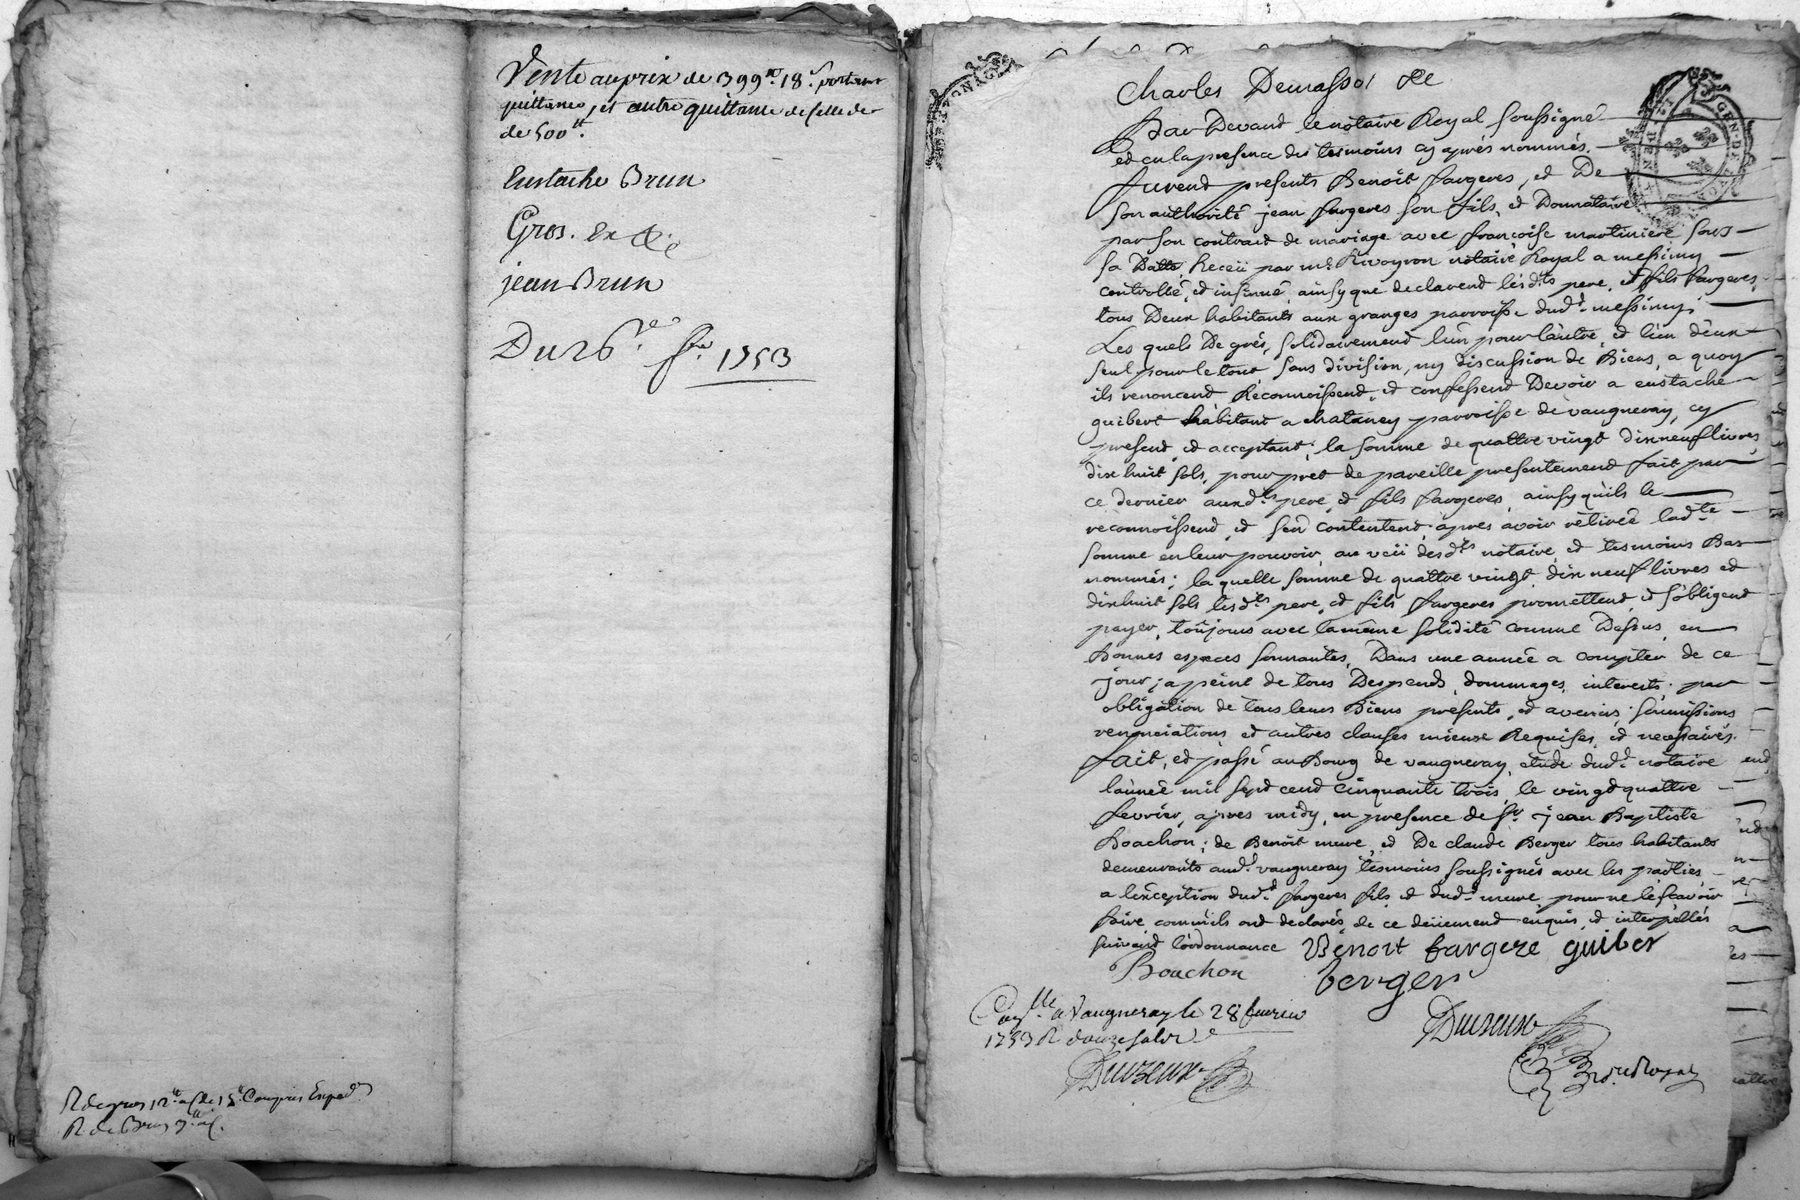 Vente au prix de 399tt. 18s. portant
quittance, et autre quittance de celle de
de 500tt.
Eustache Brun
Gros. Ex
jean Brun
Du 26e. fre. 1753
R de gros 12tt Compris Exped.
R de Brun
Charles Demasso &c
Par Devand le notaire Royal soussigné
ed en la presence des tesmoins cy aprés nommés.
furend presents Benoit fargeres, ed De
son authorité jean fargeres son fils, ed Donnataire
par son contract de mariage avec françoise martiniere sous
sa Datte, Receü par me. Rivoyron notaire Royal a messimy
controllé, ed insinué, ainsy que declarend lesdts pere, ed fils fargeres,
tous Deux habitants aux granges parroisse dudd. messimy;
Les quels De grés, solidairemend l'un pour l'autre, ed l'un d'eux
seul pour le tout, sans division, ny discussion de Biens, a quoy
ils renoncend, Reconnoissend, ed confessend Devoir a eustache
guibert habitant a chatanay parroisse de vaugneray, cy
presend, ed acceptant; la somme de quattre vingt dix neuf livres,
dix huit sols, pour pret de pareille presentemend fait par
ce dernier auxdts pere, ed fils fargeres, ainsy qu'ils le
reconnoissend, ed s'en contentend, apres avoir retirée ladte
somme en leur pouvoir, au veü desdts notaire, ed tesmoins Bas
nommés; la quelle somme de quattre vingt dix neuf livres ed
dix huit sols lesdts pere, ed fils fargeres promettend, ed s'obligend
payer, toûjours avec la même solidité comme Dessus, en
Bonnes especes sonnantes, Dans une année a compter de ce
jour; a peine de tous Despends, dommages, interests; par
obligation de tous leurs Biens presents, ed avenir, soumissions
renonciations ed autres clauses mieux Requises, ed necessaires.
fait, ed passé au Bourg de vaugneray, etude dudd. notaire
l'année mil sept cend cinquante trois, le vingd quattre
fevrier, apres midy, en presence de sr. jean Baptiste
Boachon; de Benoit meure, ed De claude Berger tous habitants
demeurants audd. vaugneray tesmoins soussignés avec les parties,
a l'exception dudd. fargeres fils, ed dudd. meure, pour ne le sçavoir
faire, comm'ils ond declarés, de ce deüemend enquis, ed interpellés
suivand l'ordonnance Benoit fargere guiber
Bouchon berger
Conlle a Vaugneray le 28 feurier
1753 R douze sols
Duvzeux
Duvzeux
Nore Royal